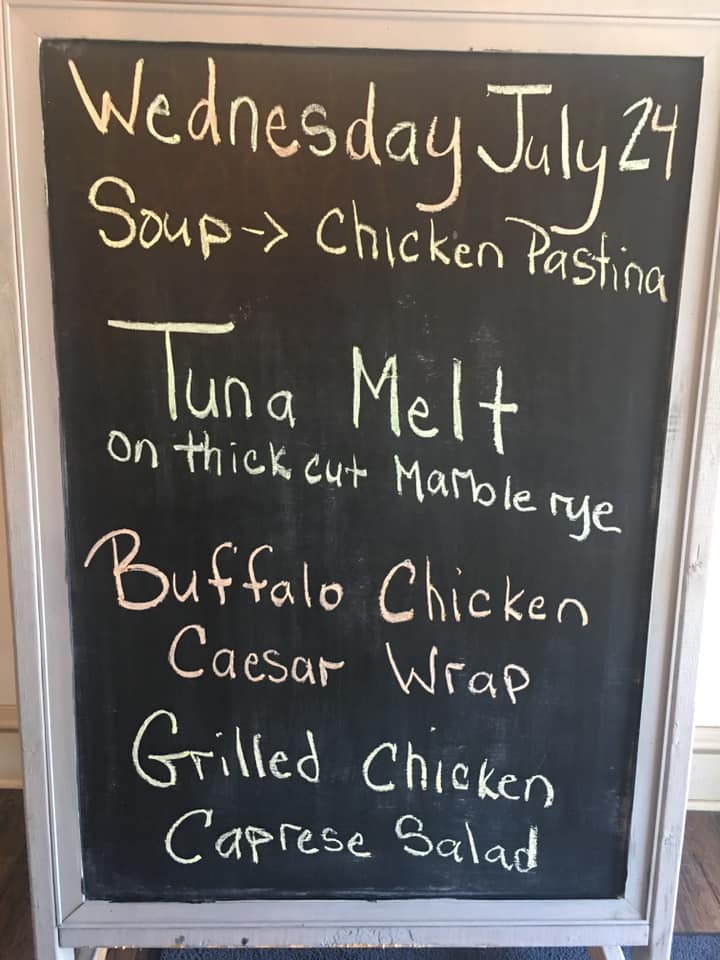 Wednesday July 24
Soup -> Chicken Pastina
Tuna Melt
on thick cut Marble rye
Buffalo Chicken
Caesar Wrap
Grilled Chicken
Caprese Salad